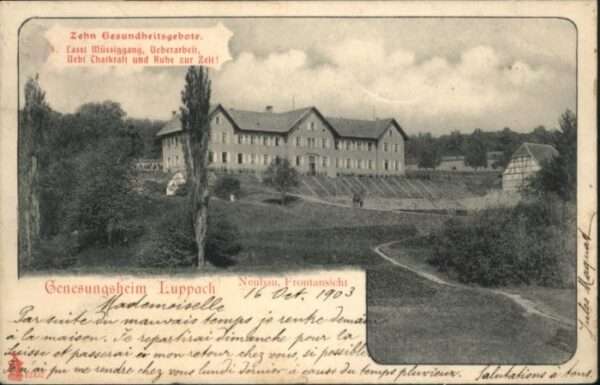 Zehn Gesundheitsgebote.
Lasst Müssiggang, Ueberarbeit,
Uebt Thatkraft und Ruhe zur Zeit!
Genesungsheim Luppach
Neubau, Frontansicht
16 Oct. 1903
Mademoiselle
Par suite du mauvais temps je rentre demain
à la maison. Je repartirai dimanche pour la
Suisse et passerai à mon retour chez vous, si possible
n'ai pu me rendre chez vous lundi dernier à cause du temps pluvieux. Salutations à tous.
Jules